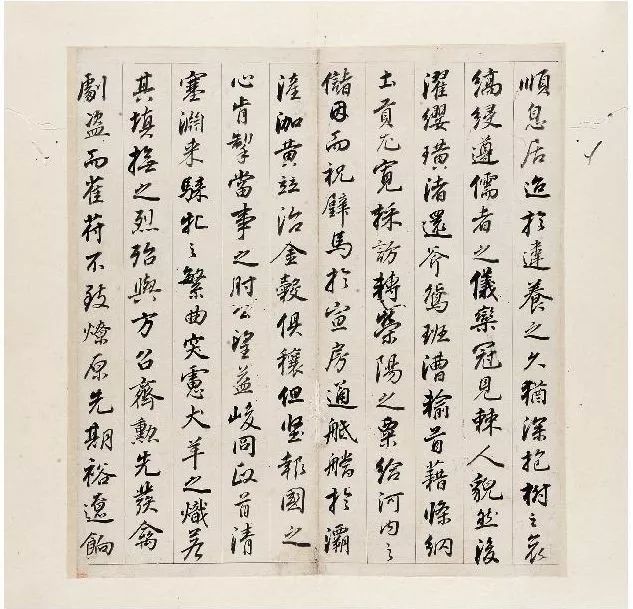 順息居迨於違養之久猶深抱樹之哀
縞綬遵儒者之儀欒冠見棘人貌然後
濯纓璜渚還斧鴛班漕輸首藉條綱
土貢尤寬採訪轉滎陽之粟給河內之
儲因而祝璧馬於宣房通舳艫於灞
滻泇黃竝治金穀俱穰但堅報國之
心肯掣當事之肘公望益峻冏政首清
塞淵来騋牝之繁曲突慮犬羊之熾若
其填撫之烈殆與方召齊勳先發禽
劇盜而萑苻不致燎原先期裕遼餉